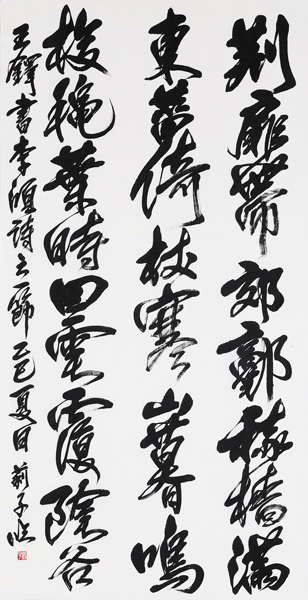 荆扉帶郊鄭稼穡滿
東菑倚杖寒山暮鳴
梭穐葉時回雲覆陰谷
王鐸書李頎詩之一節乙巳夏日 莉子臨